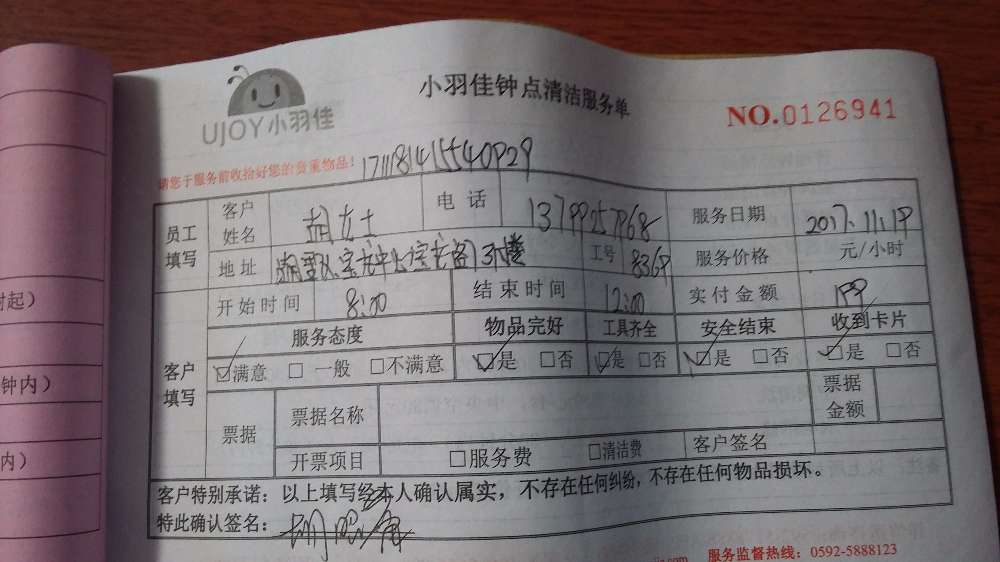 小羽佳钟点清洁服务单
UJOY小羽佳
NO.0126941
请您于服务前收拾好您的贵重物品!
员工填写 客户姓名 胡女士 电话 服务日期 2017.11.19
地址 3楼 工号 8369 服务价格 元/小时
开始时间 8:00 结束时间 12:00 实付金额
客户填写 服务态度 物品完好 工具齐全 安全结束 收到卡片
☑满意 □一般 □不满意 ☑是 □否 ☑是 □否 ☑是 □否 ☑是 □否
票据 票据名称 票据金额
开票项目 □服务费 □清洁费 客户签名
客户特别承诺：以上填写经本人确认属实，不存在任何纠纷，不存在任何物品损坏。
特此确认签名：
服务监督热线：0592-5888123
时起)
钟内)
内)